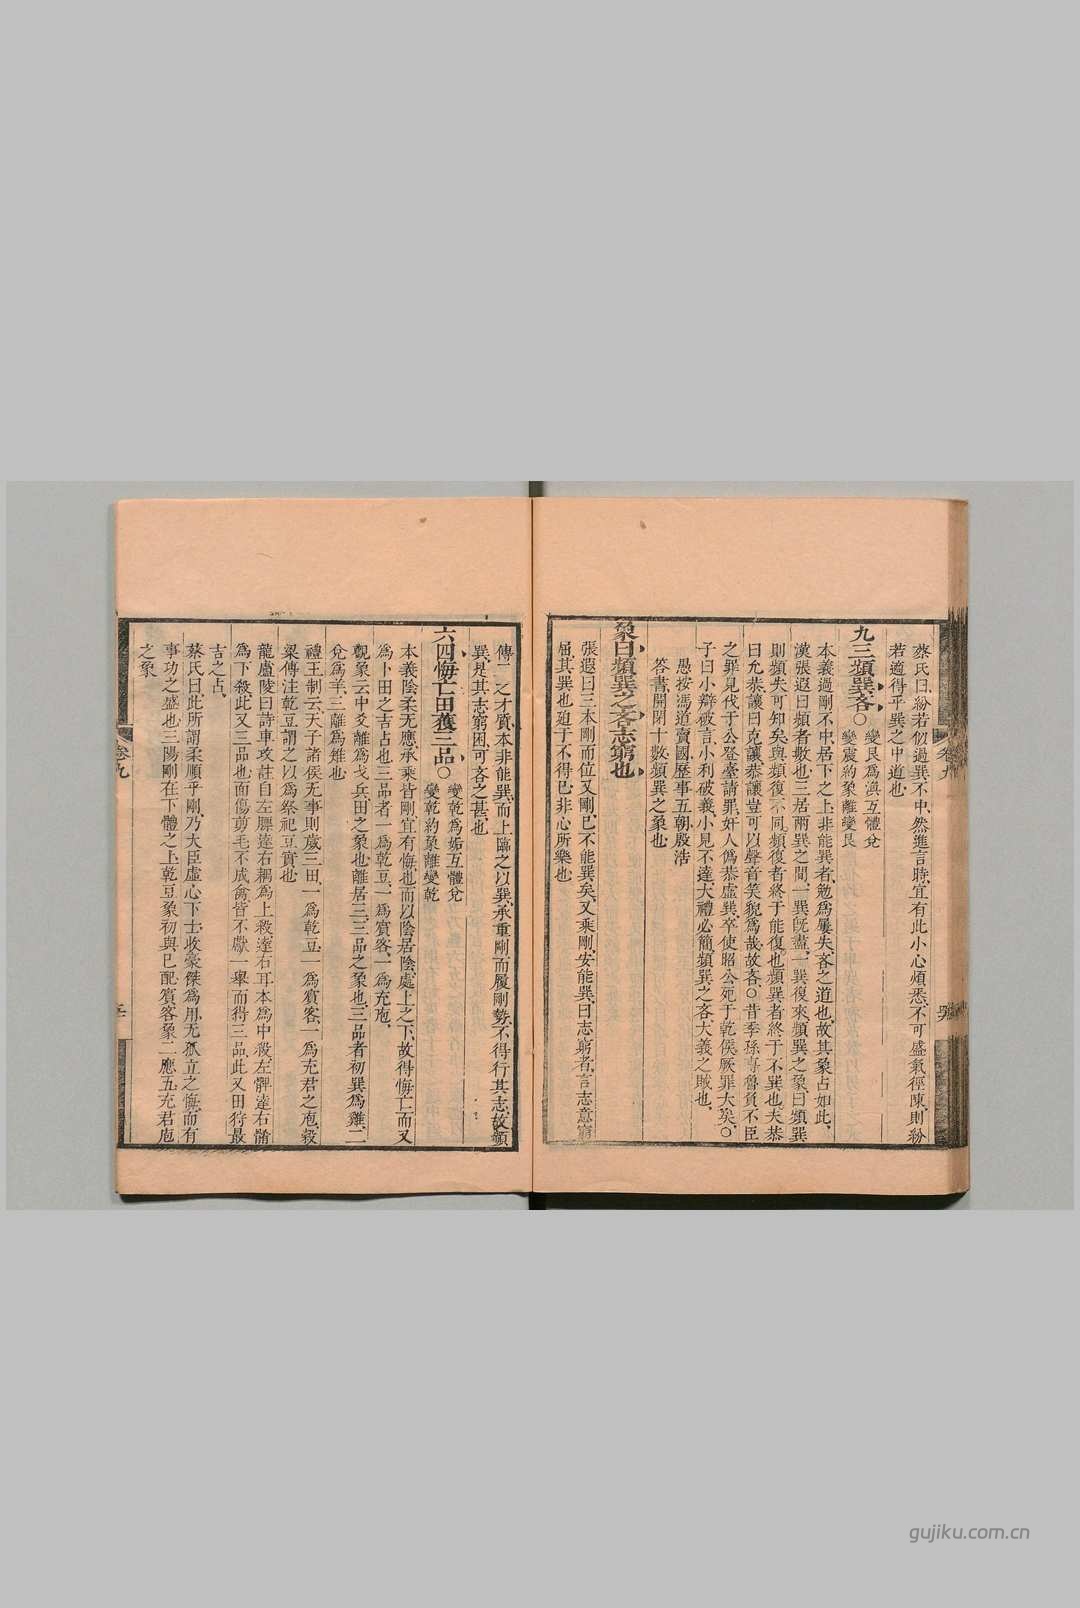 蔡氏曰紛若似過巽不中然進言時宜有此小心煩悉不可盛氣徑陳則紛
若適得乎巽之中道也
九三頻巽吝○
變艮爲渙互體兌
變震約象離變艮
本義過剛不中居下之上非能巽者勉爲屢失吝之道也故其象占如此
漢張遐曰頻者數也三居兩巽之間一巽旣盡一巽復來頻巽之象曰頻巽
則頻失可知矣與頻復不同頻復者終于能復也頻巽者終于不巽也夫恭
曰允恭讓曰克讓恭讓豈可以聲音笑貌爲哉故吝○昔季孫專魯負不臣
之罪見伐于公登臺請罪奸人僞恭虛巽卒使昭公死于乾侯厥罪大矣○
子曰小辯破言小利破義小見不達大禮必簡頻巽之吝大義之賊也
愚按馮道賣國歷事五朝殷浩
答書開閉十數頻巽之象也
象曰頻巽之吝志窮也
張遐曰三本剛而位又剛已不能巽矣又乘剛安能巽曰志窮者言志意窮
屈其巽也廹于不得已非心所樂也
傳三之才質本非能巽而上臨之以巽承重剛而履剛勢不得行其志故頻
巽是其志窮困可吝之甚也
六四悔亡田獲三品○
變乾爲姤互體兌
變乾約象離變乾
本義陰柔无應承乘皆剛宜有悔也而以陰居陰處上之下故得悔亡而又
爲卜田之吉占也三品者一爲乾豆一爲賓客一爲充庖
觀象云中爻離爲戈兵田之象也離居三三品之象也三品者初巽爲雞二
兌爲羊三離爲雉也
禮王制云天子諸侯无事則歲三田一爲乾豆一爲賓客一爲充君之庖穀
梁傳注乾豆謂之以爲祭祀豆實也
龍盧陵曰詩車攻註自左膘達右耦爲上殺達右耳本爲中殺左髀達右髃
爲下殺此又三品也面傷剪毛不成禽皆不獻一舉而得三品此又田狩最
吉之占
蔡氏曰此所謂柔順乎剛乃大臣虛心下士收豪傑爲用无孤立之悔而有
事功之盛也三陽剛在下體之上乾豆象初與已配賓客象二應五充君庖
之象
卷九
gujiku.com.cn